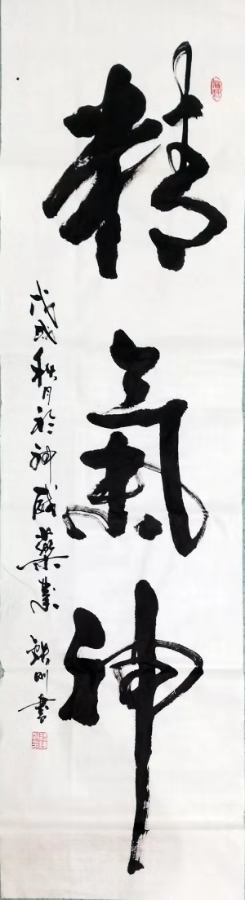 精氣神
戊戌秋月於神威藥業 鉄刚書